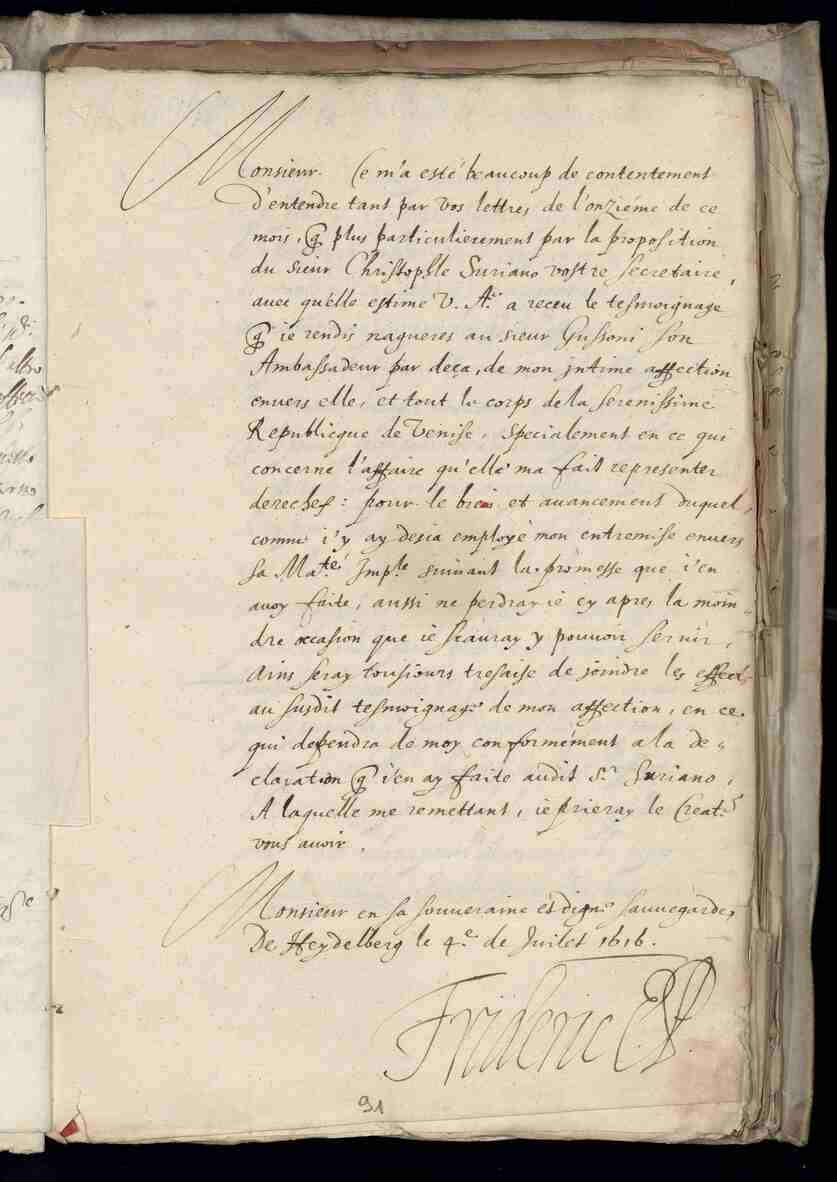 Monsieur. Ce m'a esté beaucoup de contentement
d'entendre tant par vos lettres de l'onziéme de ce
mois, q plus particulierement par la proposition
du sieur Christophle Suriano vostre secretaire,
avec qu'elle estime V. A.e a receu le tesmoignage
q ie rendis nagueres au sieur Gussoni son
Ambassadeur par deça, de mon intime affection
envers elle, et tout le corps de la serenissime
Republicque de Venise, specialement en ce qui
concerne l'affaire qu'elle m'a fait representer
derechef: pour le bien et avancement duquel,
comme i'y ay desia employé mon entremise envers
sa Ma.té Imp.le suivant la promesse que i'en
avoy faite, aussi ne perdray ie cy apres la moin-
dre occasion que ie sçauray y pouvoir servir,
Ains seray tousiours tresaise de joindre les effects
au susdit tesmoignage de mon affection, en ce
qui dependra de moy conformément a la de-
claration q i'en ay faite audit S.r Suriano,
A laquelle me remettant, ie prieray le Creat.r
vous avoir.
Monsieur en sa souveraine et digne sauvegarde,
De Heydelberg le 4.e de Juilet 1616.
Frideric
91